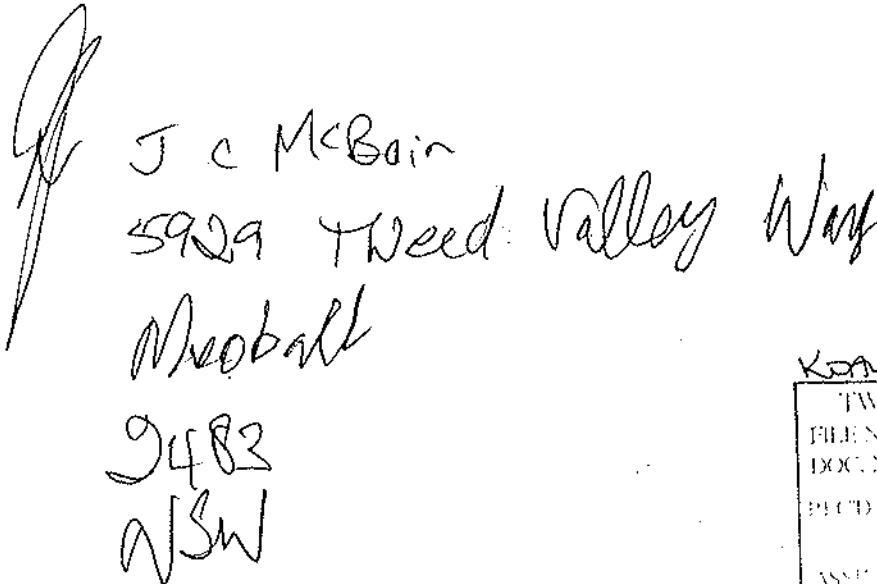 J C McBain
5929 Tweed Valley Way
Mooball
2483
NSW
KOA
TW
FILE N
DOC. N
REC'D